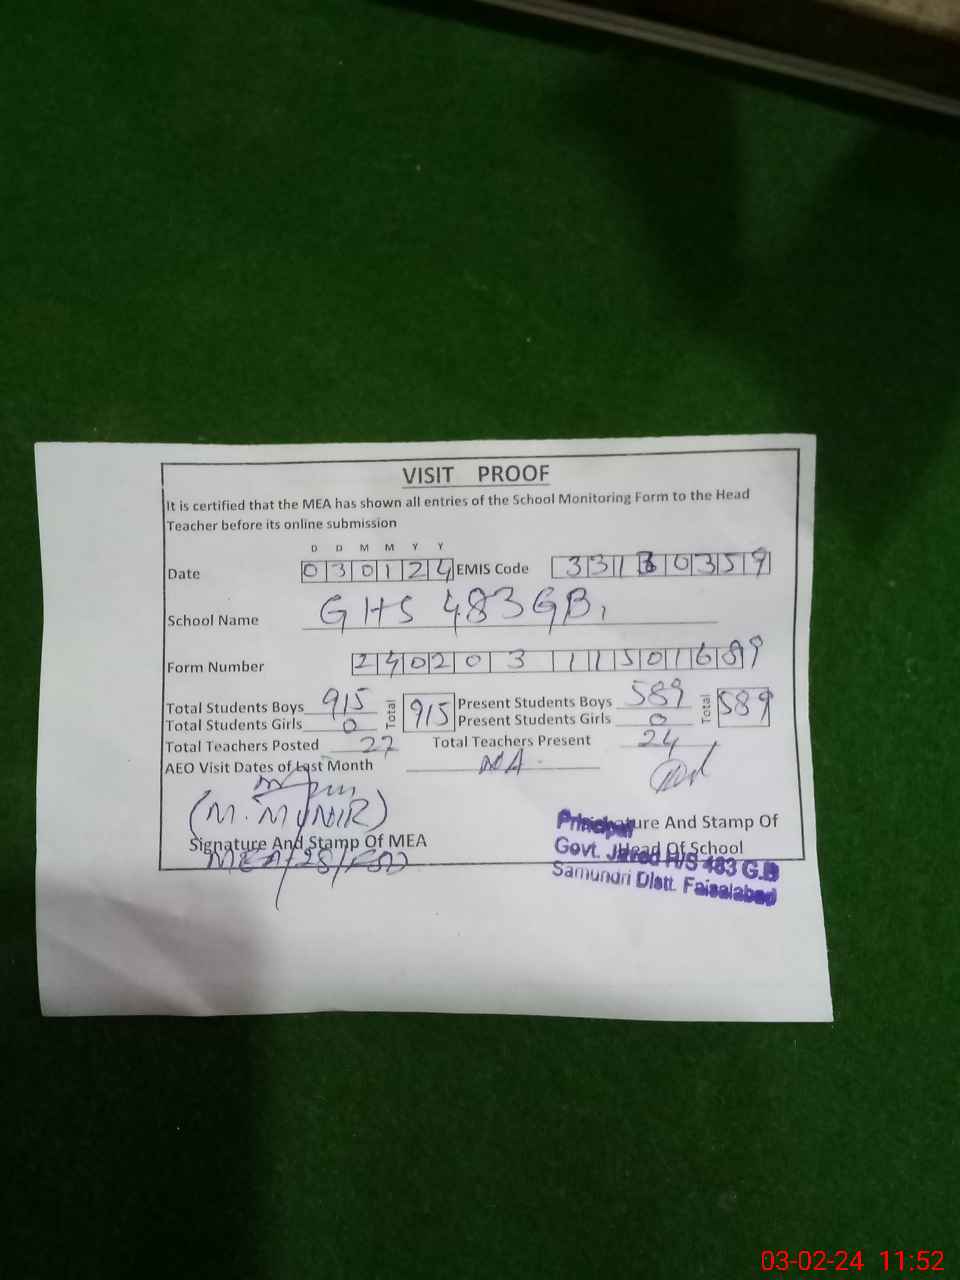 VISIT PROOF
It is certified that the MEA has shown all entries of the School Monitoring Form to the Head
Teacher before its online submission
D D M M Y Y
Date 030124 EMIS Code 33130359
School Name GHS 483 GB,
Form Number 240203 11501689
Total Students Boys 915 Total 915 Present Students Boys 589 Total 589
Total Students Girls 0 Present Students Girls 0
Total Teachers Posted 27 Total Teachers Present 24
AEO Visit Dates of Last Month NA.
(M. MUNIR)
Signature And Stamp Of MEA
MEA/28/FSD
Signature And Stamp Of
Head Of School
Principal
Govt. H/S 483 G.B
Samundri Distt. Faisalabad
03-02-24 11:52